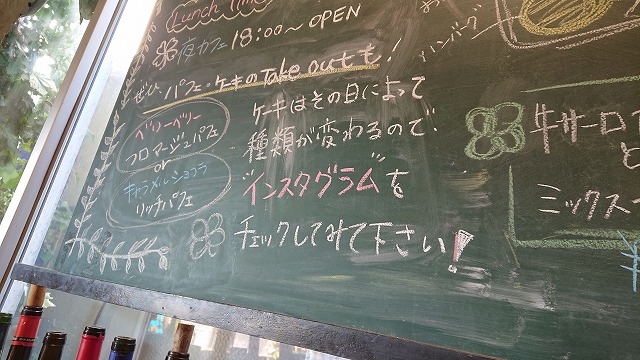 Lunch Time
夜カフェ 18:00～OPEN
ぜひ、パフェ・ケーキのTake outも!
ベリーベリー
フロマージュパフェ
or
キャラメルショコラ
リッチパフェ
ケーキはその日によって
種類が変わるので
"インスタグラム"を
チェックしてみて下さい!
ハンバーグ
牛サーロ
ミックス
¥